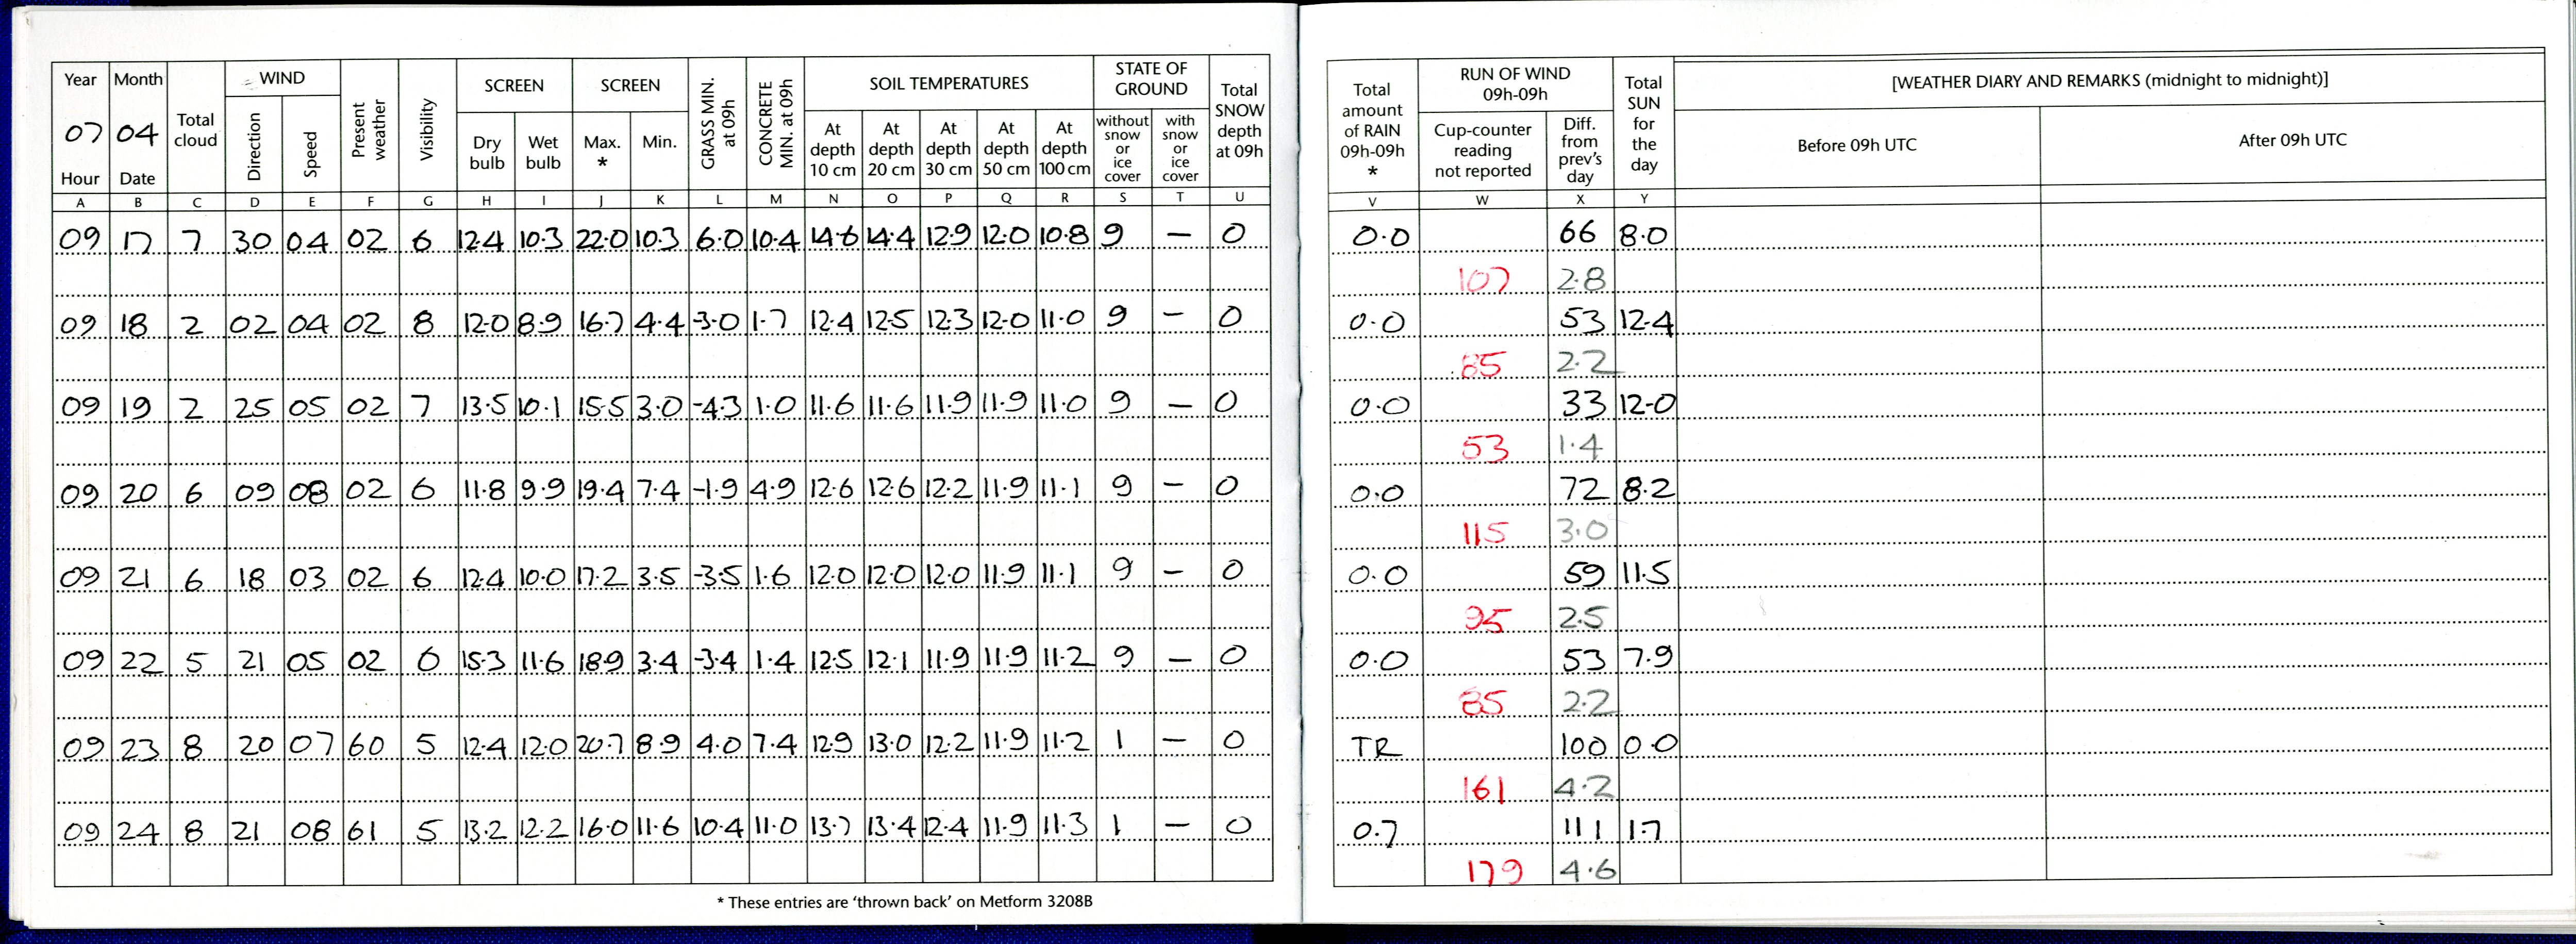 Year Month WIND SCREEN SCREEN SOIL TEMPERATURES STATE OF GROUND
07 04 Total cloud Direction Speed Present weather Visibility Dry bulb Wet bulb Max. * Min. GRASS MIN. at 09h CONCRETE MIN. at 09h At depth 10 cm At depth 20 cm At depth 30 cm At depth 50 cm At depth 100 cm without snow or ice cover with snow or ice cover Total SNOW depth at 09h
Hour Date
A B C D E F G H I J K L M N O P Q R S T U
09 17 7 30 04 02 6 12.4 10.3 22.0 10.3 6.0 10.4 14.6 14.4 12.9 12.0 10.8 9 — 0
09 18 2 02 04 02 8 12.0 8.9 16.7 4.4 -3.0 1.7 12.4 12.5 12.3 12.0 11.0 9 — 0
09 19 2 25 05 02 7 13.5 10.1 15.5 3.0 -4.3 1.0 11.6 11.6 11.9 11.9 11.0 9 — 0
09 20 6 09 08 02 6 11.8 9.9 19.4 7.4 -1.9 4.9 12.6 12.6 12.2 11.9 11.1 9 — 0
09 21 6 18 03 02 6 12.4 10.0 17.2 3.5 -3.5 1.6 12.0 12.0 12.0 11.9 11.1 9 — 0
09 22 5 21 05 02 6 15.3 11.6 18.9 3.4 -3.4 1.4 12.5 12.1 11.9 11.9 11.2 9 — 0
09 23 8 20 07 60 5 12.4 12.0 20.7 8.9 4.0 7.4 12.9 13.0 12.2 11.9 11.2 1 — 0
09 24 8 21 08 61 5 13.2 12.2 16.0 11.6 10.4 11.0 13.7 13.4 12.4 11.9 11.3 1 — 0
* These entries are ‘thrown back’ on Metform 3208B
Total amount of RAIN 09h-09h * RUN OF WIND 09h-09h Total SUN for the day [WEATHER DIARY AND REMARKS (midnight to midnight)]
Cup-counter reading not reported Diff. from prev's day Before 09h UTC After 09h UTC
V W X Y
0.0 66 8.0
107 2.8
0.0 53 12.4
85 2.2
0.0 33 12.0
53 1.4
0.0 72 8.2
115 3.0
0.0 59 11.5
95 2.5
0.0 53 7.9
85 2.2
TR 100 0.0
161 4.2
0.7 111 1.7
179 4.6